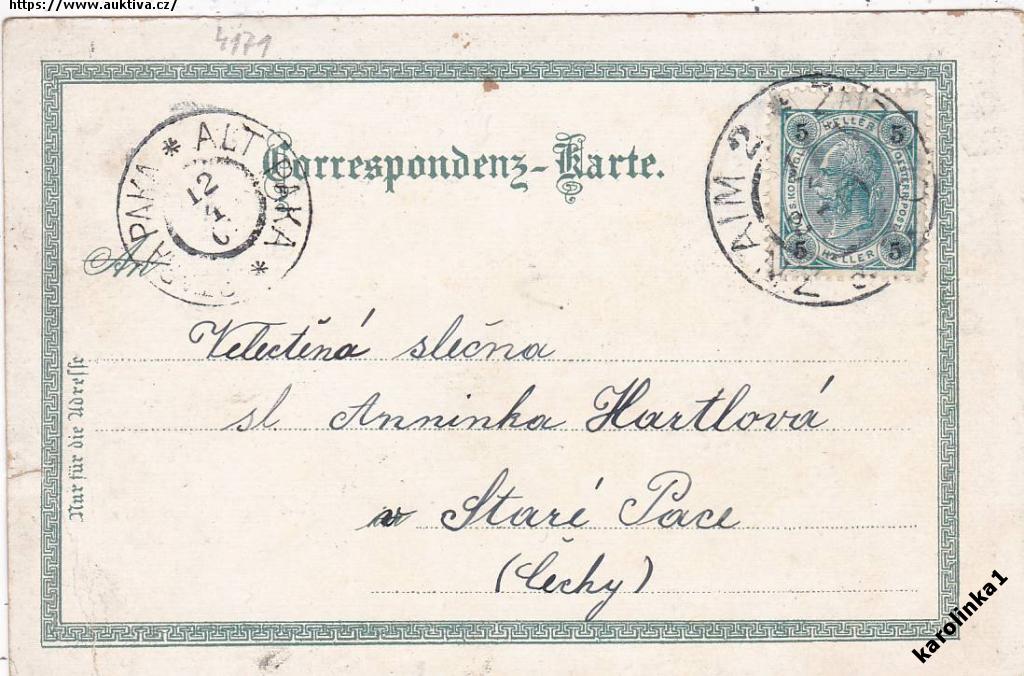 https://www.auktiva.cz/
4171
Correspondenz-Karte.
* ALT PAKA * STARÁ PAKA
12
4
ZNAIM 2
5 HELLER 5
5 HELLER 5
An
Velectěná slečna
sl Anninka Hartlová
v Staré Pace
(Čechy)
Nur für die Adresse
karolinka1